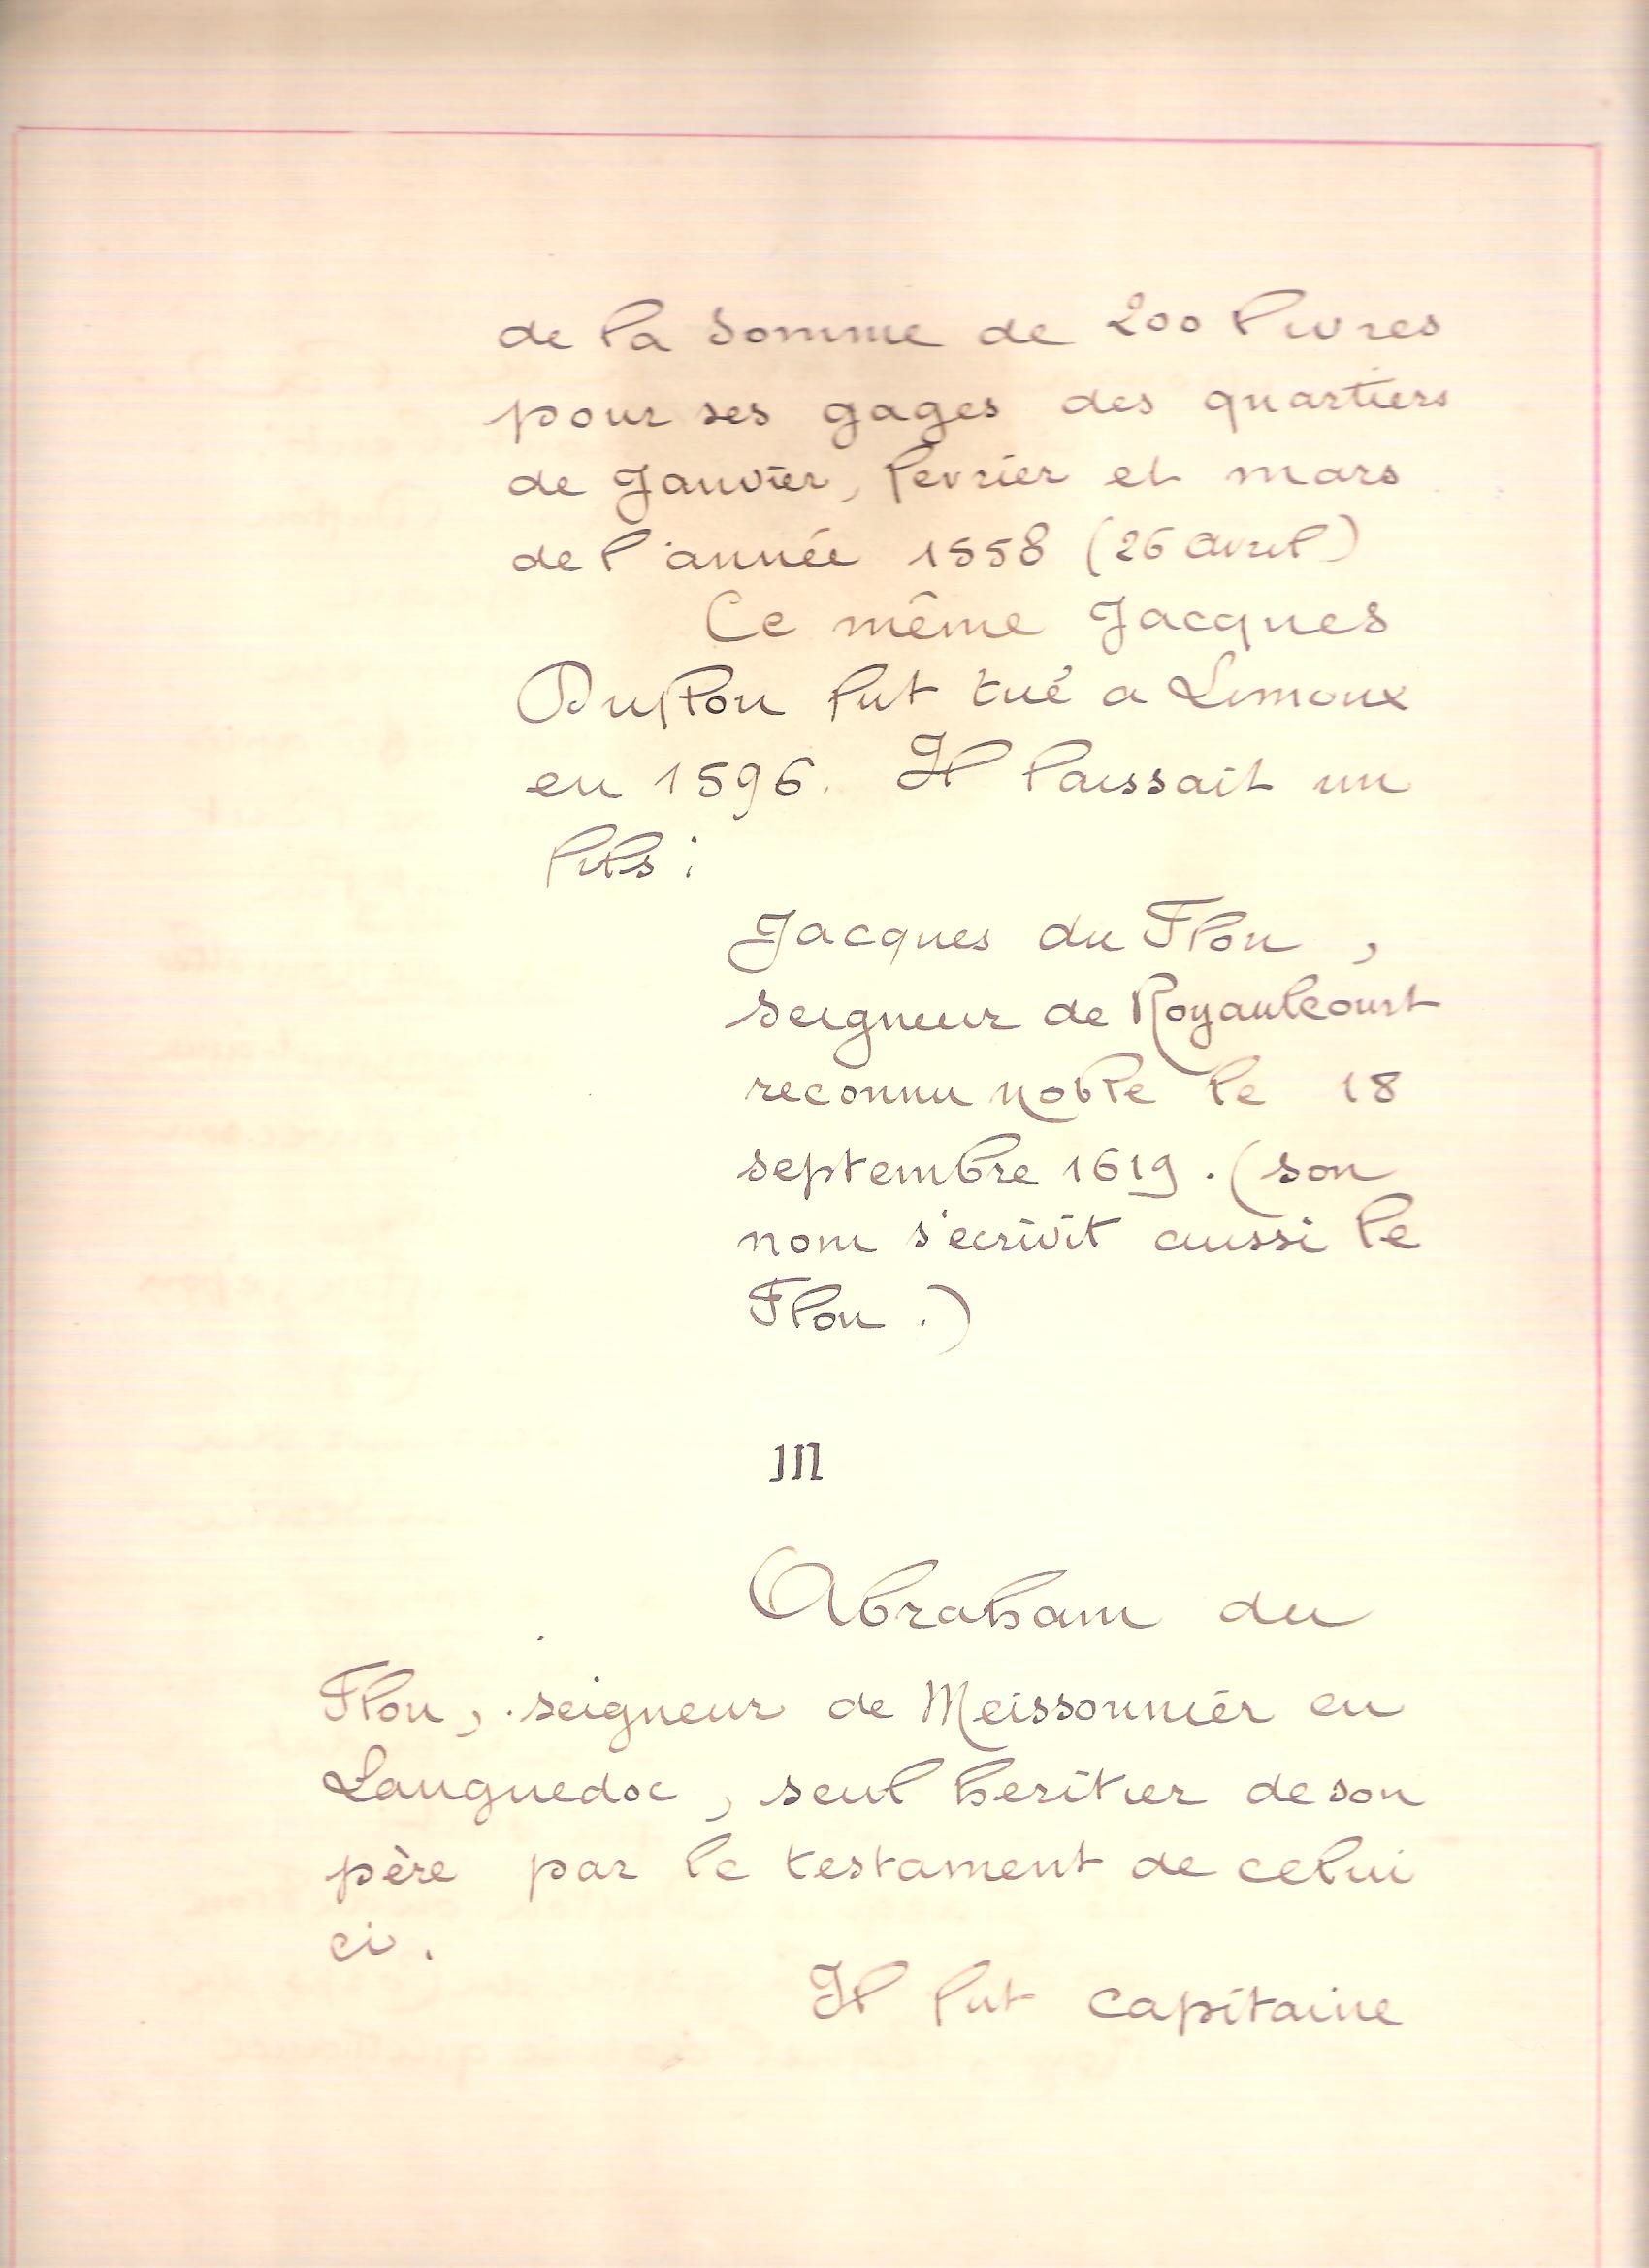 de la somme de 200 livres
pour ses gages des quartiers
de Janvier, fevrier et mars
de l'année 1558 (26 avril)
Ce même Jacques
Duflou fut tué a Limoux
en 1596. Il laissait un
fils :
Jacques du Flou,
seigneur de Royaulcourt
reconnu noble le 18
septembre 1619. (son
nom s'ecrivit aussi le
Flou.)
III
Abraham du
Flou, seigneur de Meissonnier en
Languedoc, seul heritier de son
père par le testament de celui
ci.
Il fut capitaine